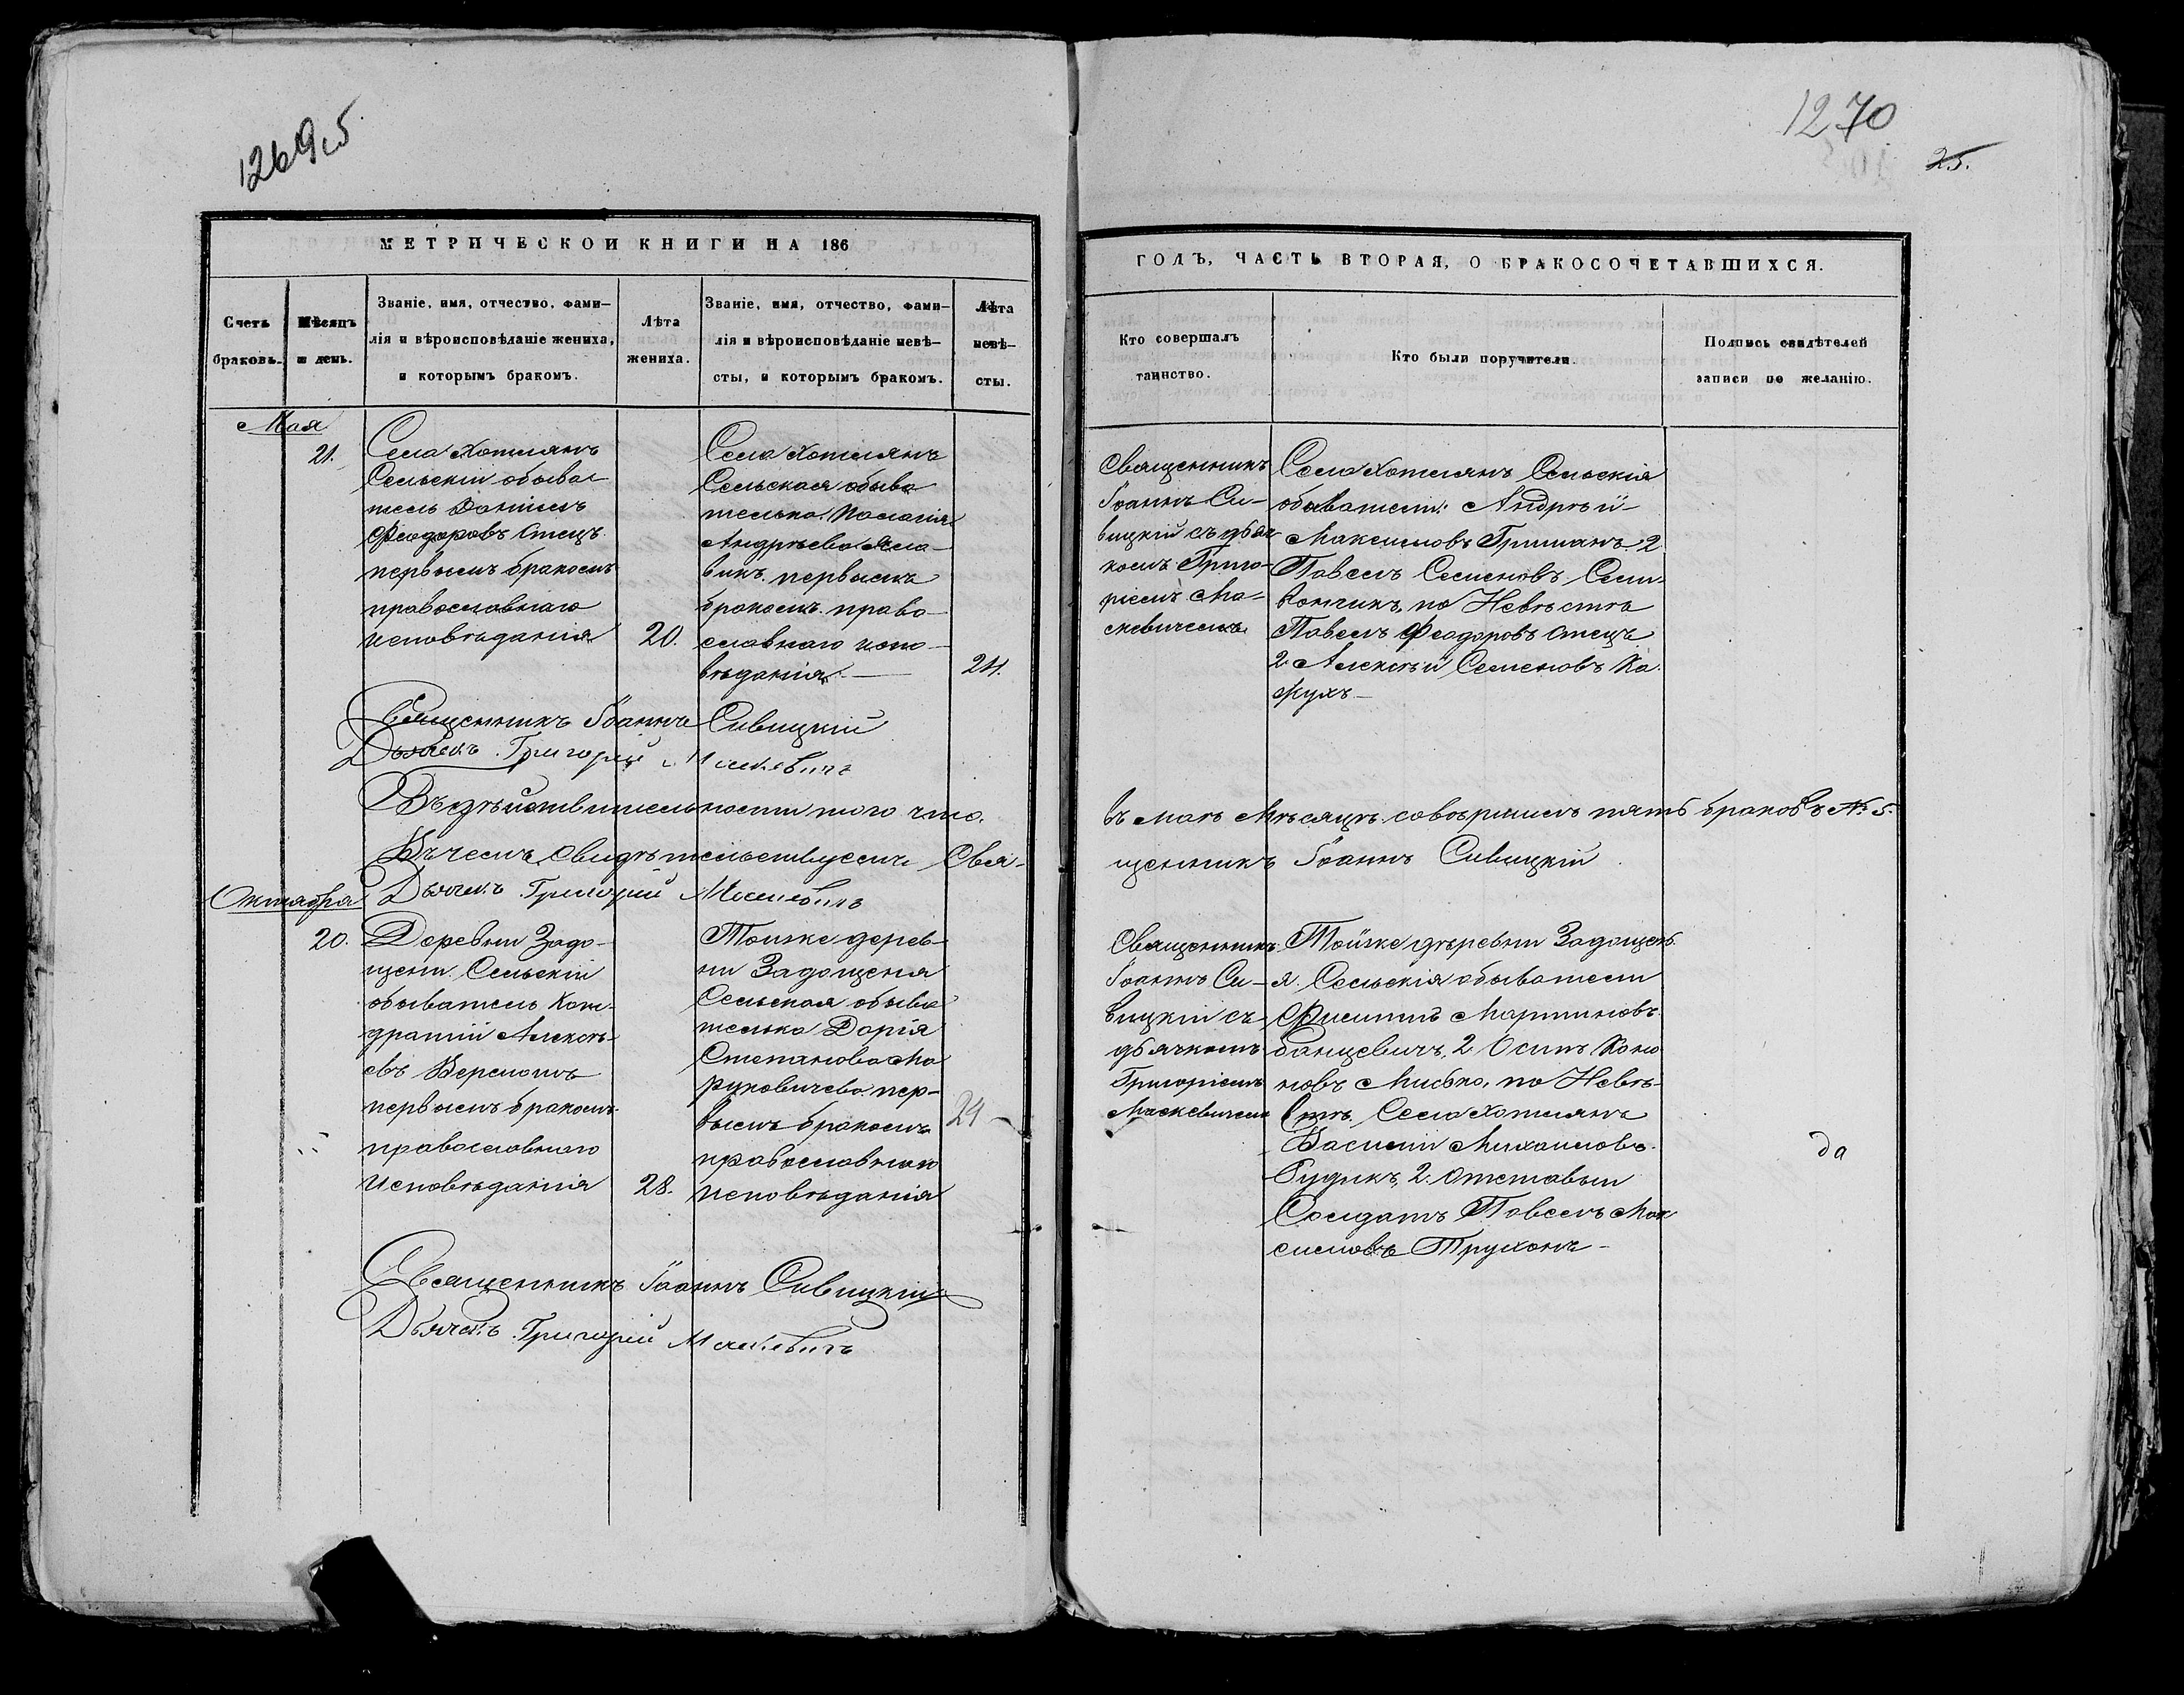 1269 об
1270
25.
МЕТРИЧЕСКОЙ КНИГИ НА 186
ГОДЪ, ЧАСТЬ ВТОРАЯ, О БРАКОСОЧЕТАВШИХСЯ.
Счетъ
браковъ.
Мѣсяцъ
и день.
Званіе, имя, отчество, фами-
лія и вѣроисповѣданіе жениха,
и которымъ бракомъ.
Лѣта
жениха.
Званіе, имя, отчество, фами-
лія и вѣроисповѣданіе невѣ-
сты, и которымъ бракомъ.
Лѣта
невѣ-
сты.
Кто совершалъ
таинство.
Кто были поручители.
Подпись свидѣтелей
записи по желанію.
Мая
21.
Села Хотилянъ
Сельскій обыва
тель Даніилъ
Феодоровъ
первымъ бракомъ
православнаго
исповѣданія
20.
Села Хотилянъ
Сельская обыва
телька Палагія
Андрѣева
первымъ
бракомъ право-
славнаго испо-
вѣданія
21.
Священникъ
Іоаннъ Си-
вицкій съ дьяч
комъ Григо-
ріемъ Ма-
скевичемъ
Села Хотилянъ Сельскія
обыватели: Андрѣй
Максимовъ 2
Павелъ Семеновъ
по Невѣстѣ
Павелъ Феодоровъ
2. Алексѣй Семеновъ Ка
Священникъ Іоаннъ Сивицкій
Дьячекъ Григорій Маскевичъ
Въ дѣйствительности того что
въ маѣ Мѣсяцѣ совершилъ пять браковъ № 5.
Въ чемъ свидѣтельствуемъ Свя-
щенникъ Іоаннъ Сивицкій
Дьячекъ Григорій Маскевичъ
Октября
20.
Деревни Задо-
щени Сельскій
обыватель Кон-
дратій Алексѣ-
евъ
первымъ бракомъ
православнаго
исповѣданія
28.
Тойже дерев-
ни Задощеня
Сельская обыва
телька Дарія
Степанова Ма
руковичева пер-
вымъ бракомъ
православнаго
исповѣданія
24
Священникъ
Іоаннъ Си-
вицкій съ
дьячкомъ
Григоріемъ
Маскевичемъ
Тойже деревни Задощен
я Сельскія обыватели
Филиппъ Мартиновъ
2 Осипъ Коно
новъ Мисько, по Невѣ-
стѣ Села Хотилянъ
Василій Михаиловъ
Рудикъ, 2. отставъ
Солдатъ Павелъ Мак
симовъ Трухонъ
да
Священникъ Іоаннъ Сивицкій
Дьячекъ Григорій Маскевичъ